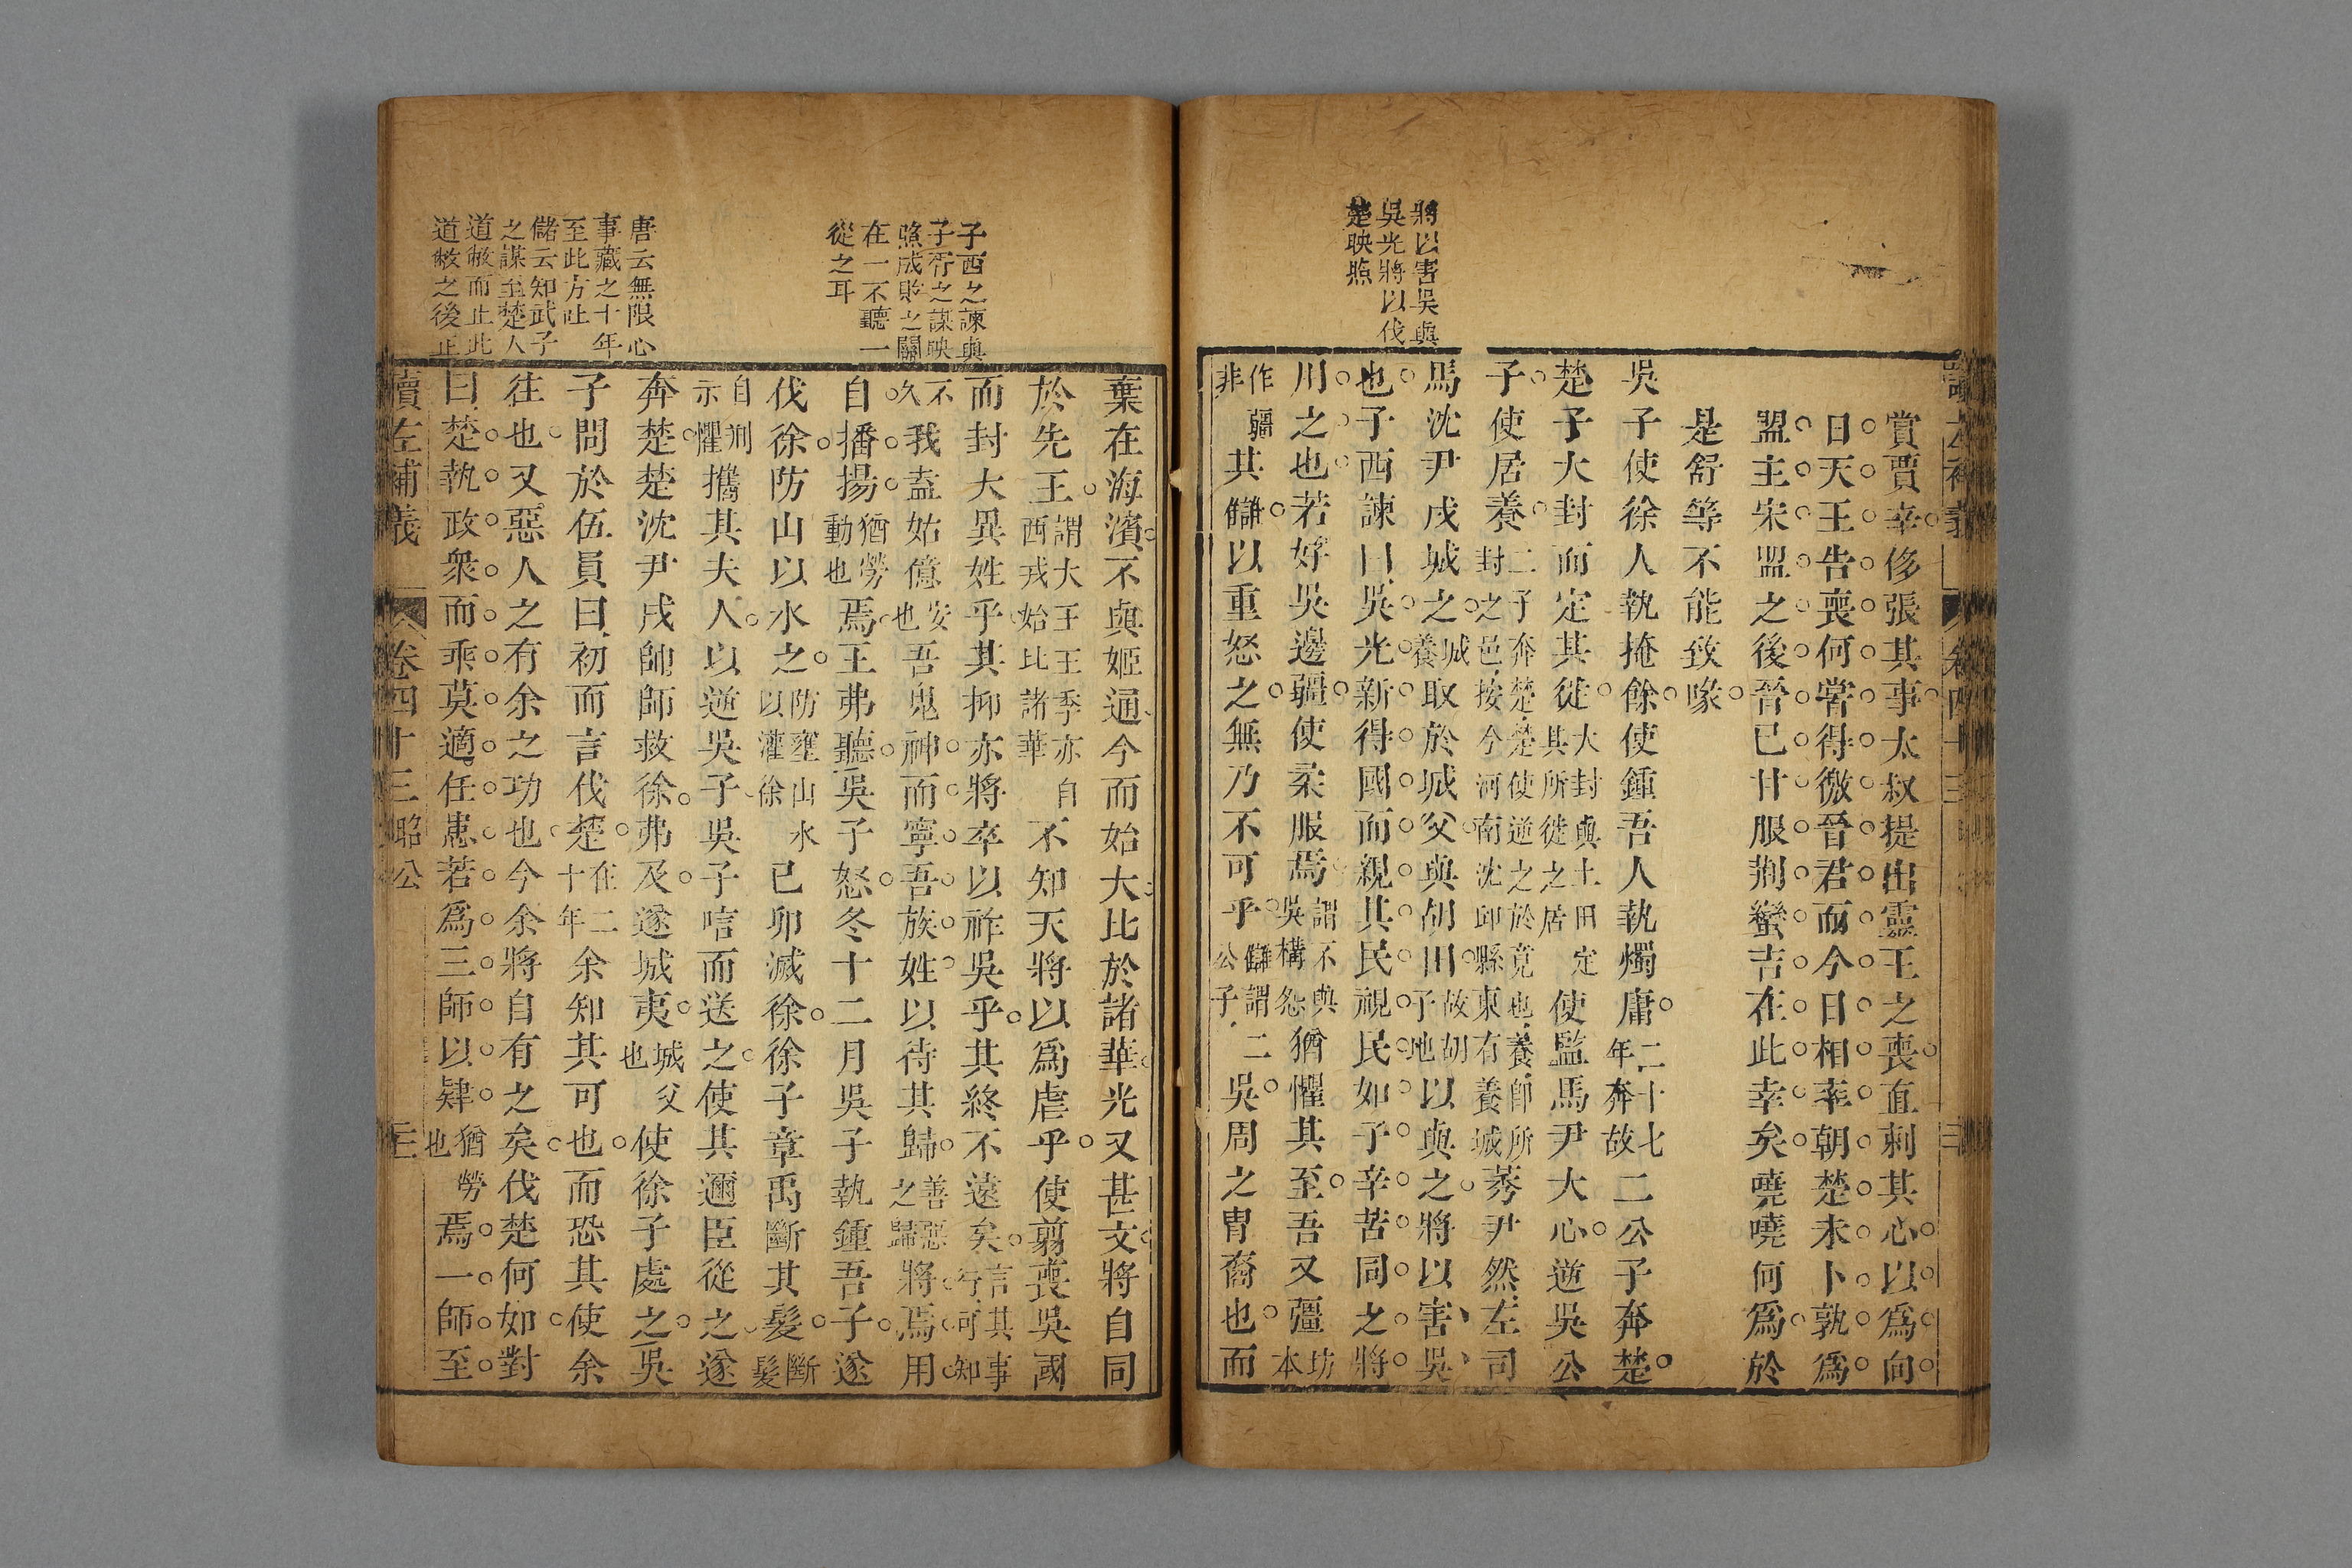 將以害吳與
吳光將以伐
楚映照
賞賈幸侈張其事太叔提出靈王之喪直刺其心以為向
日天王告喪何嘗得徼晉君而今日相率朝楚未卜孰為
盟主宋盟之後晉已甘服荆蠻吉在此幸矣嘵嘵何為於
是舒等不能致喙
吳子使徐人執掩餘使鍾吾人執燭庸二十七年奔故二公子奔楚
楚子大封而定其徙大封與土田定其所徙之居使監馬尹大心逆吳公
子使居養二子奔楚楚使逆之於竟也養師所封之邑按今河南沈邱縣東有養城莠尹然左司
馬沈尹戌城之城養取於城父與胡田故胡子地以與之將以害吳
也子西諫曰吳光新得國而親其民視民如子辛苦同之將
用之也若好吳邊疆使柔服焉謂不與吳構怨猶懼其至吾又疆坊本
作疆非其讎以重怒之無乃不可乎讎謂二公子吳周之冑裔也而
棄在海濱不與姬通今而始大比於諸華光又甚文將自同
於先王謂大王王季亦自西戎始比諸華不知天將以為虐乎使翦喪吳國
而封大異姓乎其抑亦將卒以祚吳乎其終不遠矣言其事行可知
不久我盍姑億安也吾鬼神而寧吾族姓以待其歸善惡之歸將焉用
自播揚猶勞動也焉王弗聽吳子怒冬十二月吳子執鍾吾子遂
伐徐防山以水之防壅山水以灌徐己卯滅徐徐子章禹斷其髮斷髮
自刑示懼攜其夫人以逆吳子吳子唁而送之使其邇臣從之遂
奔楚楚沈尹戌帥師救徐弗及遂城夷城父也使徐子處之吳
子問於伍員曰初而言伐楚在二十年余知其可也而恐其使余
往也又惡人之有余之功也今余將自有之矣伐楚何如對
曰楚執政衆而乖莫適任患若為三師以肄猶勞也焉一師至
子西之諫與
子胥之謀映
照成敗之關
在一不聽一
從之耳
唐云無限心
事藏之十年
至此方吐
儲云知武子
之謀至楚人
道敝而止此
道敝之後正
讀左補義 卷四十三 昭公 三